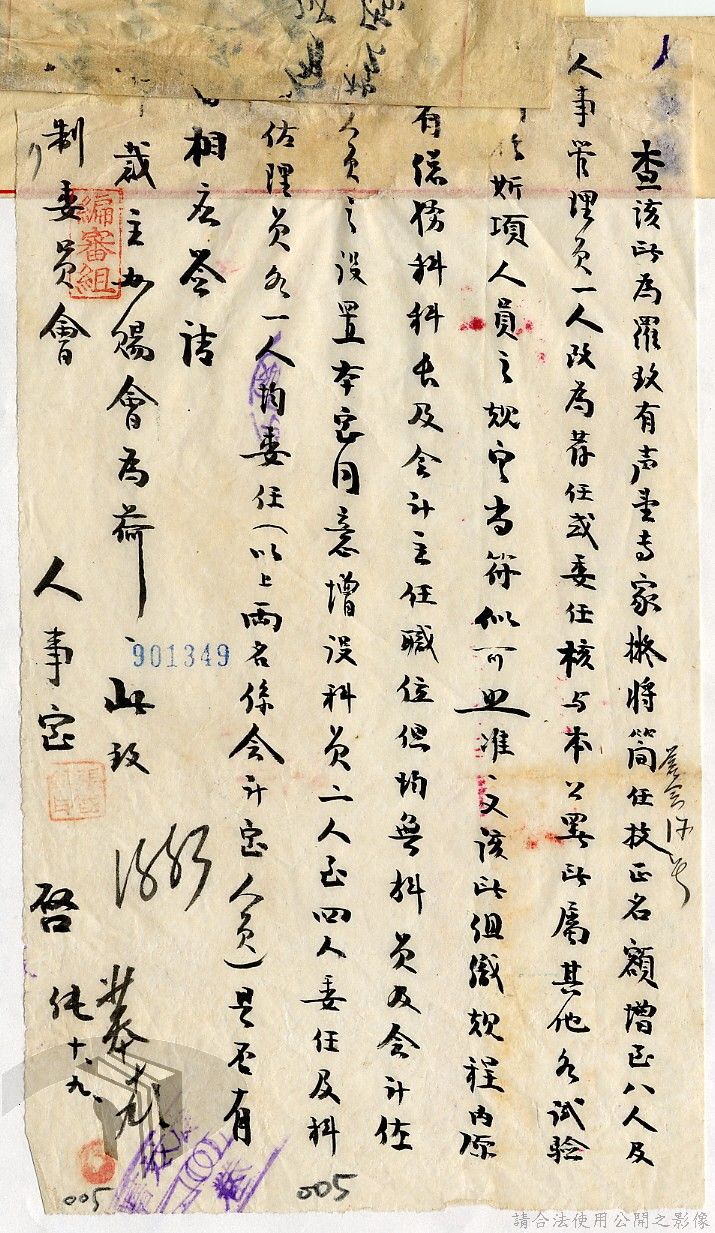 查該所為羅致有声望專家擬將簡任技正名額增至八人及
人事管理員一人改為荐任或委任核與本公署所屬其他各試驗
所項人員之規定尚符似可照准又該所組織規程內原
有總務科科長及会計主任職位但均無科員及会計佐
人員之設置本室同意增設科員二人至四人委任及科
佐理員各一人均委任(以上兩名係会計室人員)是否有
相应签请
裁主如賜會為荷 此致
制委員會
人事室 啓 十、九、
編審組
901349
005
005
請合法使用公開之影像